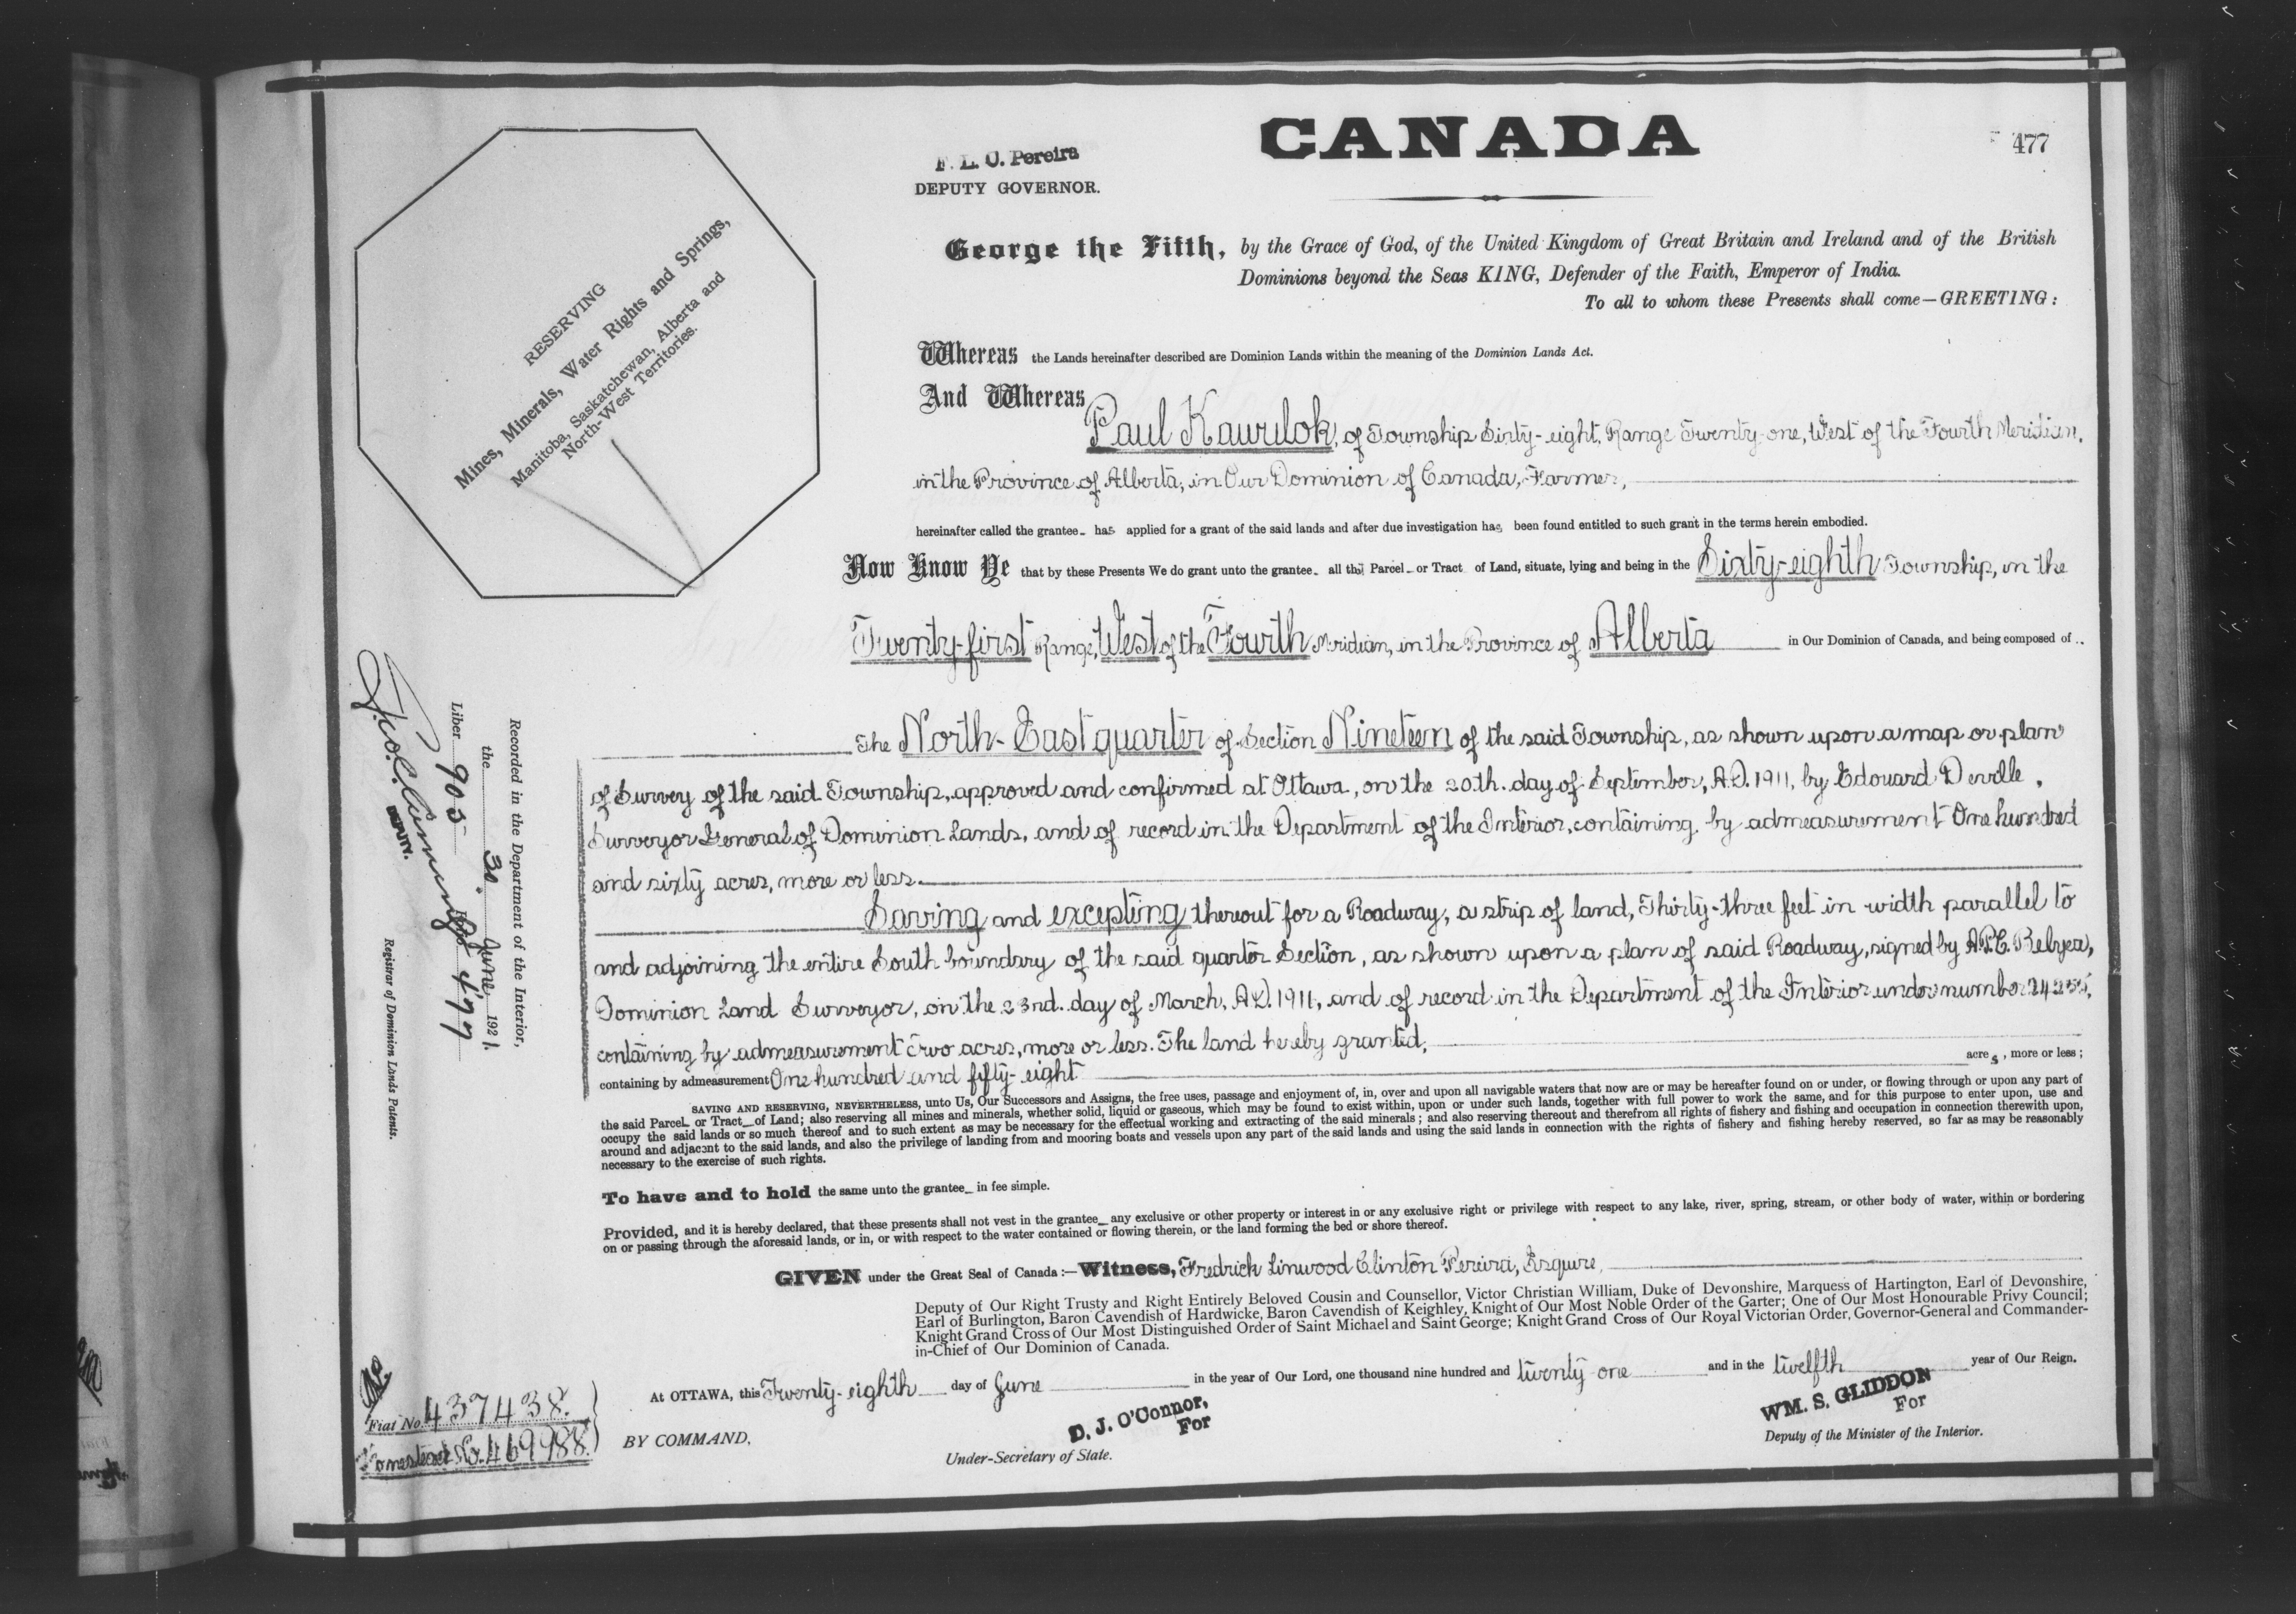 CANADA
477
F. L. C. Pereira
DEPUTY GOVERNOR.
George the Fifth, by the Grace of God, of the United Kingdom of Great Britain and Ireland and of the British
Dominions beyond the Seas KING, Defender of the Faith, Emperor of India.
To all to whom these Presents shall come—GREETING:
RESERVING
Mines, Minerals, Water Rights and Springs,
Manitoba, Saskatchewan, Alberta and
North-West Territories.
Whereas the Lands hereinafter described are Dominion Lands within the meaning of the Dominion Lands Act.
And Whereas
Paul Kawulok, of Township Sixty-eight, Range Twenty-one, West of the Fourth Meridian,
in the Province of Alberta, in Our Dominion of Canada, Farmer,
hereinafter called the grantee has applied for a grant of the said lands and after due investigation has been found entitled to such grant in the terms herein embodied.
Now Know Ye that by these Presents We do grant unto the grantee all that Parcel or Tract of Land, situate, lying and being in the Sixty-eighth Township, in the
Twenty-first Range, West of the Fourth Meridian, in the Province of Alberta in Our Dominion of Canada, and being composed of
The North-East quarter of Section Nineteen of the said Township, as shown upon a map or plan
of Survey of the said Township, approved and confirmed at Ottawa, on the 20th. day of September, A.D. 1911, by Edouard Deville,
Surveyor General of Dominion Lands, and of record in the Department of the Interior, containing by admeasurement One hundred
and sixty acres, more or less.
Saving and excepting thereout for a Roadway, a strip of land, Thirty-three feet in width parallel to
and adjoining the entire South boundary of the said quarter Section, as shown upon a plan of said Roadway, signed by A.P.C. Belyea,
Dominion Land Surveyor, on the 23rd. day of March, A.D. 1911, and of record in the Department of the Interior under number
containing by admeasurement Two acres, more or less. The land hereby granted,
containing by admeasurement One hundred and fifty-eight acres, more or less;
SAVING AND RESERVING, NEVERTHELESS, unto Us, Our Successors and Assigns, the free uses, passage and enjoyment of, in, over and upon all navigable waters that now are or may be hereafter found on or under, or flowing through or upon any part of
the said Parcel or Tract of Land; also reserving all mines and minerals, whether solid, liquid or gaseous, which may be found to exist within, upon or under such lands, together with full power to work the same, and for this purpose to enter upon, use and
occupy the said lands or so much thereof and to such extent as may be necessary for the effectual working and extracting of the said minerals; and also reserving thereout and therefrom all rights of fishery and fishing and occupation in connection therewith upon,
around and adjacent to the said lands, and also the privilege of landing from and mooring boats and vessels upon any part of the said lands and using the said lands in connection with the rights of fishery and fishing hereby reserved, so far as may be reasonably
necessary to the exercise of such rights.
To have and to hold the same unto the grantee in fee simple.
Provided, and it is hereby declared, that these presents shall not vest in the grantee any exclusive or other property or interest in or any exclusive right or privilege with respect to any lake, river, spring, stream, or other body of water, within or bordering
on or passing through the aforesaid lands, or in, or with respect to the water contained or flowing therein, or the land forming the bed or shore thereof.
GIVEN under the Great Seal of Canada:—Witness, Fredrick Linwood Clinton Pereira, Esquire,
Deputy of Our Right Trusty and Right Entirely Beloved Cousin and Counsellor, Victor Christian William, Duke of Devonshire, Marquess of Hartington, Earl of Devonshire,
Earl of Burlington, Baron Cavendish of Hardwicke, Baron Cavendish of Keighley, Knight of Our Most Noble Order of the Garter; One of Our Most Honourable Privy Council;
Knight Grand Cross of Our Most Distinguished Order of Saint Michael and Saint George; Knight Grand Cross of Our Royal Victorian Order, Governor-General and Commander-
in-Chief of Our Dominion of Canada.
At OTTAWA, this Twenty-eighth day of June in the year of Our Lord, one thousand nine hundred and twenty-one and in the twelfth year of Our Reign.
BY COMMAND,
D. J. O'Connor,
For
Under-Secretary of State.
WM. S. GLIDDON
For
Deputy of the Minister of the Interior.
Recorded in the Department of the Interior,
the 30 June 1921.
Liber 905 Folio 477
DEPUTY.
Registrar of Dominion Lands Patents.
Fiat No. 437438.
Homestead No. 469988.